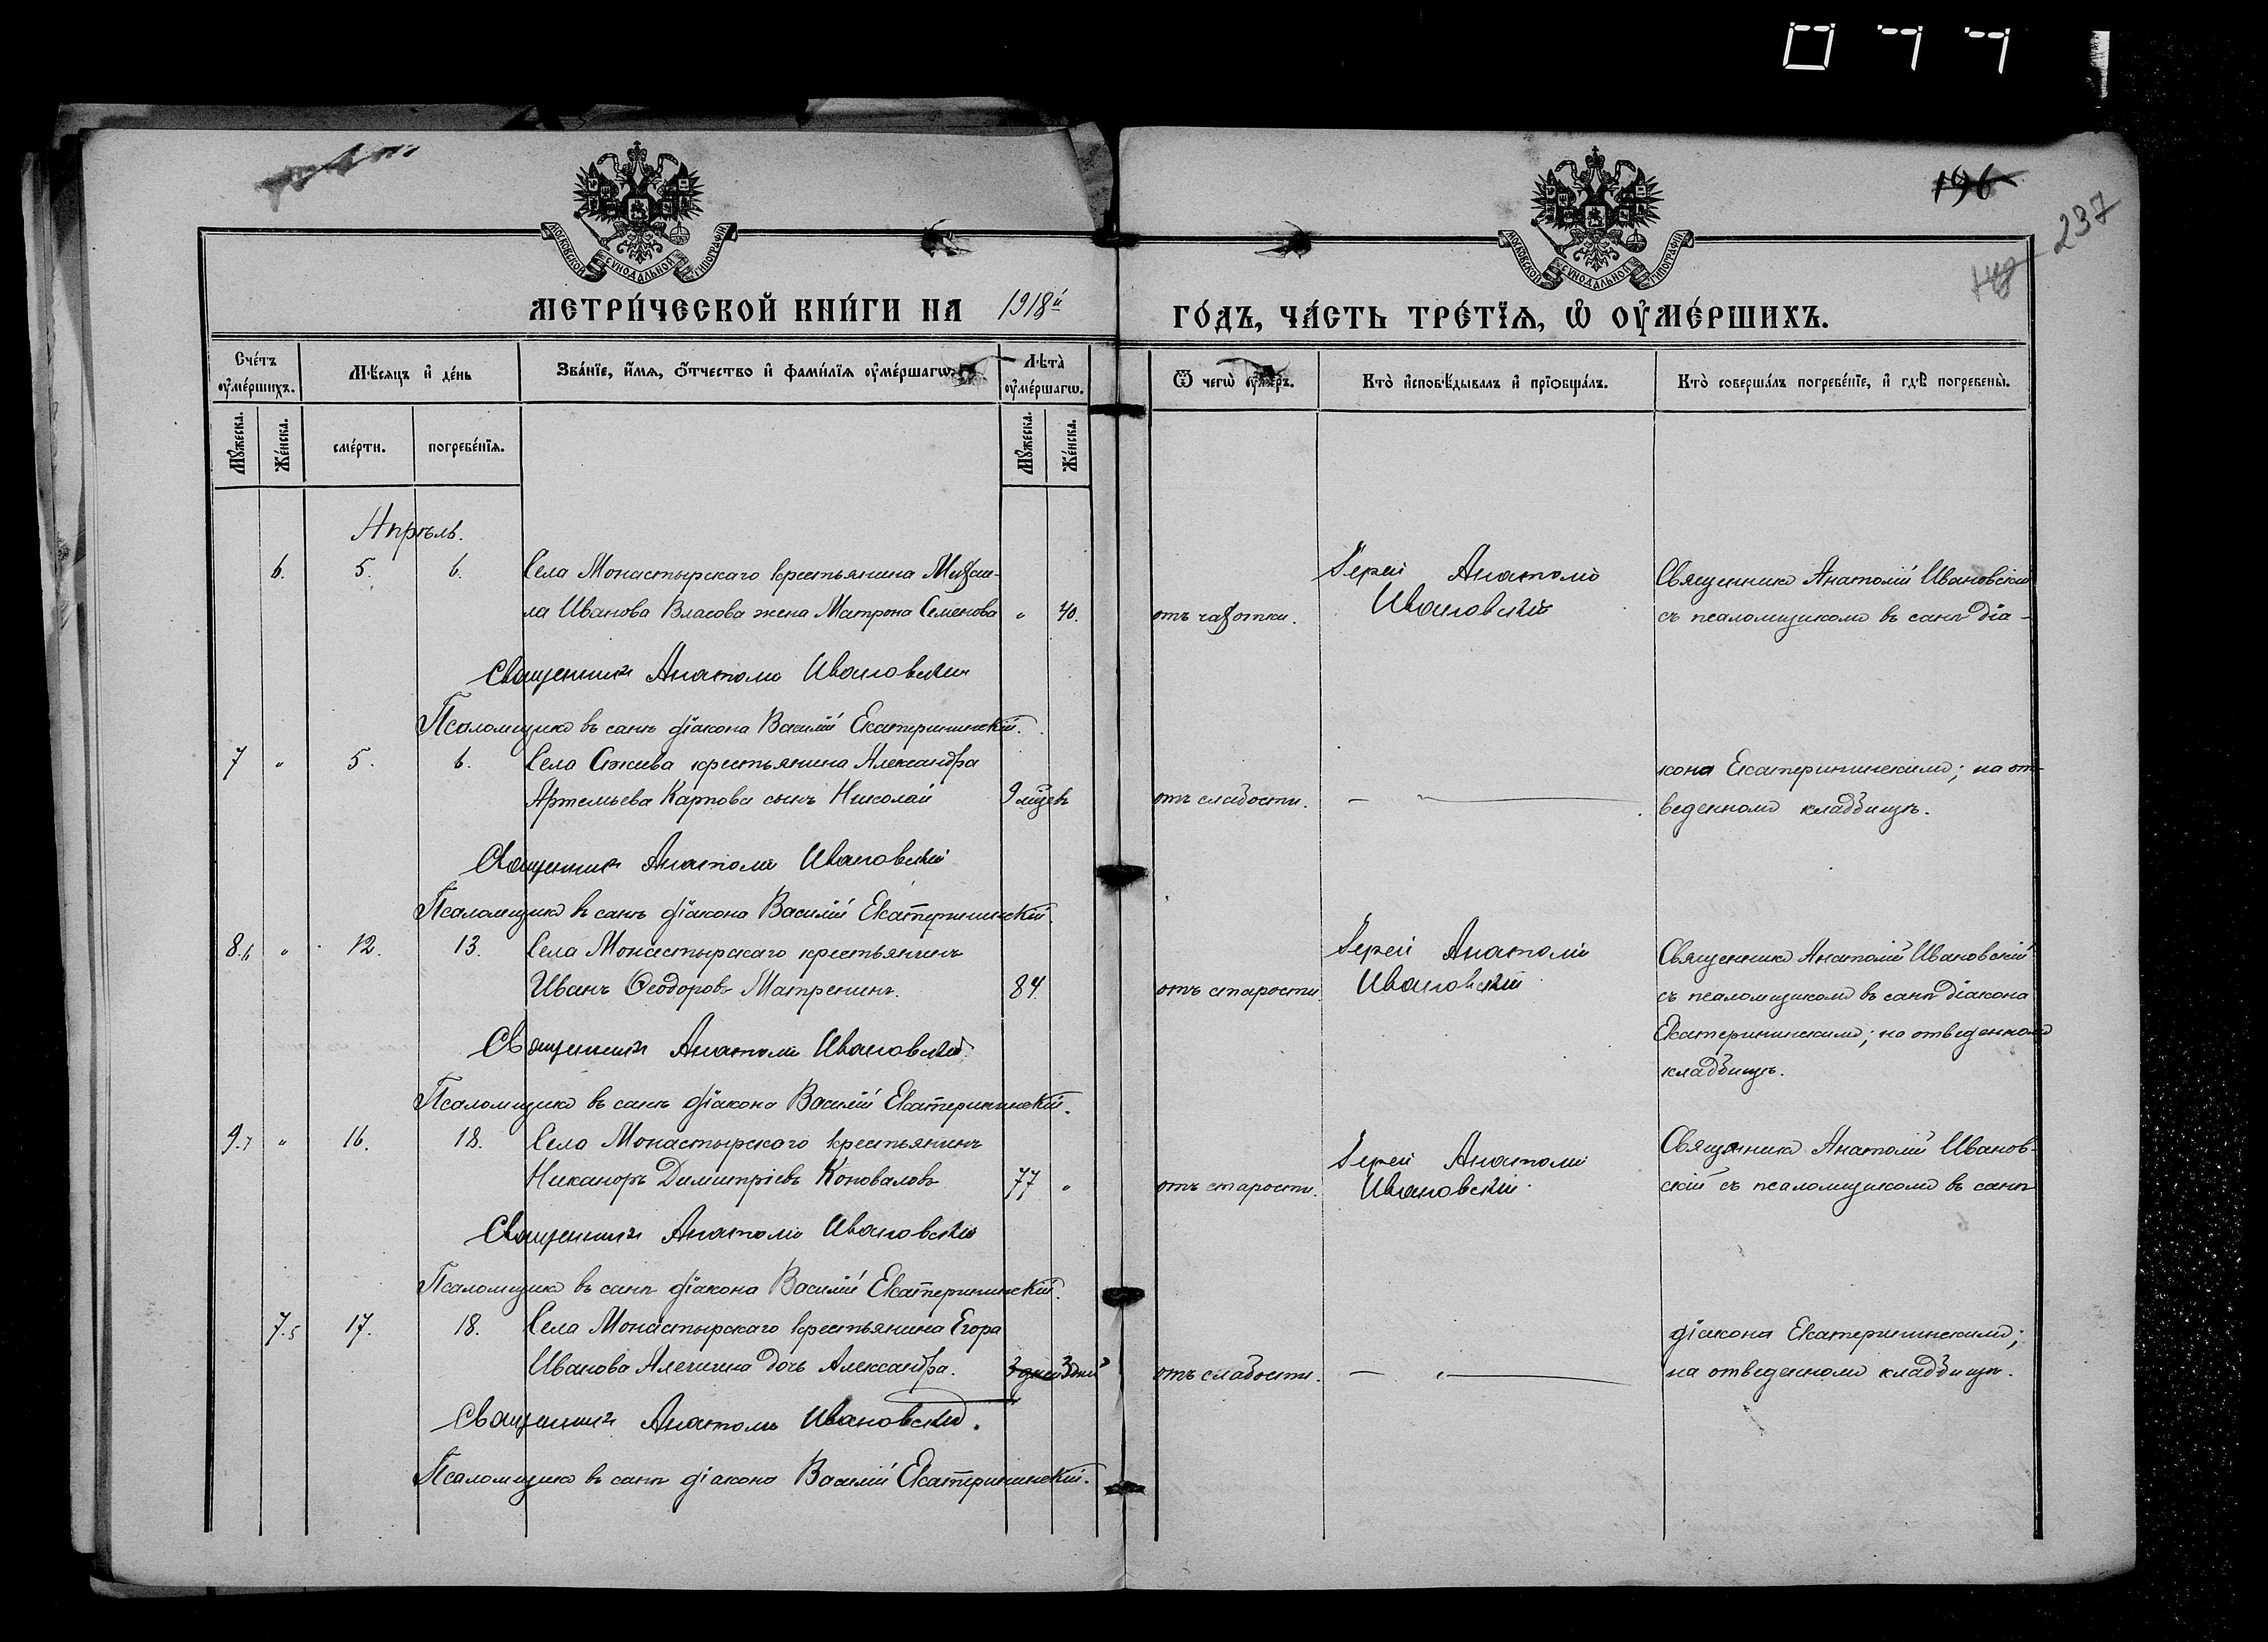 077
196
237
МОСКОВСКОЙ СѴНОДАЛЬНОЙ ТИПОГРАФІИ
МОСКОВСКОЙ СѴНОДАЛЬНОЙ ТИПОГРАФІИ
МЕТРИ́ЧЕСКОЙ КНИ́ГИ НА 1918й
ГО́ДЪ, ЧА́СТЬ ТРЕ́ТЇѦ, Ѡ҆ ОУ҆МЕ́РШИХЪ.
Сче́тъ оу҆ме́ршихъ.
М́ѣсѧцъ и҆ де́нь
Зва́нїе, и҆́мѧ, ѻ҆́тчество и҆ фами́лїѧ оу҆ме́ршагѡ.
Лѣта̀ оу҆ме́ршагѡ.
Ѿ чегѡ̀ оу҆́меръ.
Кто̀ и҆сповѣ́дывалъ и҆ прїѡбща́лъ.
Кто̀ соверша́лъ погребе́нїе, и҆ гдѣ̀ погребены̀.
Мꙋ́жеска.
Же́нска.
сме́рти.
погребе́нїѧ.
Мꙋ́жеска.
Же́нска.
Апрѣль.
6. 5. 6. Села Монастырскаго крестьянина Михаи-
ла Иванова Власова жена Матрона Семенова " 40. отъ чахотки.
Іерей Анатолій
Ивановскій
Священникъ Анатолій Ивановскій
съ псаломщикомъ въ санѣ діа-
Священникъ Анатолій Ивановскій
Псаломщикъ въ санѣ діакона Василій Екатерининскій.
7 " 5. 6. Села Сижева крестьянина Александра
Артемьева Карпова сынъ Николай 9 мѣсѧц. отъ слабости. — " —
кона Екатерининскимъ; на от-
веденномъ кладбищѣ.
Священникъ Анатолій Ивановскій
Псаломщикъ въ санѣ діакона Василій Екатерининскій.
8.6 " 12. 13. Села Монастырскаго крестьянинъ
Иванъ Ѳеодоровъ Матренинъ. 84. отъ старости.
Іерей Анатолій
Ивановскій
Священникъ Анатолій Ивановскій
съ псаломщикомъ въ санѣ діакона
Екатерининскимъ; на отведенномъ
кладбищѣ.
Священникъ Анатолій Ивановскій.
Псаломщикъ въ санѣ діакона Василій Екатерининскій.
9.7 " 16. 18. Села Монастырскаго крестьянинъ
Никаноръ Димитріевъ Коноваловъ 77 " отъ старости.
Іерей Анатолій
Ивановскій.
Священникъ Анатолій Иванов-
скій съ псаломщикомъ въ санѣ
Священникъ Анатолій Ивановскій
Псаломщикъ въ санѣ діакона Василій Екатерининскій.
7.5 17. 18. Села Монастырскаго крестьянина Егора
Иванова дочь Александра. 3 дней 3 дней отъ слабости. — " —
діакона Екатерининскимъ;
на отведенномъ кладбищѣ.
Священникъ Анатолій Ивановскій.
Псаломщикъ въ санѣ діакона Василій Екатерининскій.